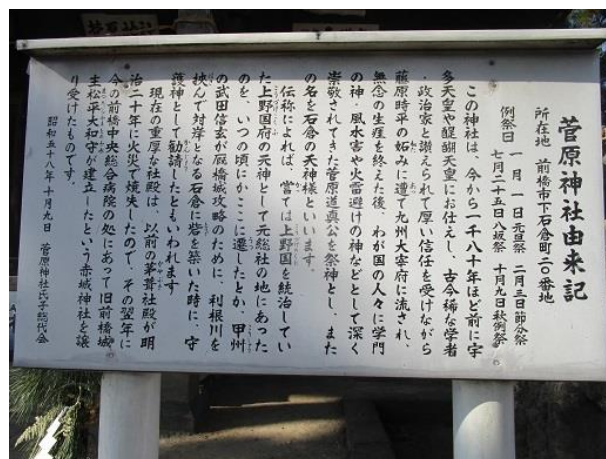 菅原神社由来記
所在地 前橋市下石倉町二〇番地
例祭日 一月一日元旦祭 二月三日節分祭
七月二十五日八坂祭 十月九日秋例祭
この神社は、今から一千八十年ほど前に宇
多天皇や醍醐天皇にお仕えし、古今稀な学者
・政治家と讃えられて厚い信任を受けながら
藤原時平の妬みに遭て九州大宰府に流され、
無念の生涯を終えた後、わが国の人々に学門
の神・風水害や火雷避けの神などとして深く
崇敬されてきた菅原道真公を祭神とし、また
の名を石倉の天神様といいます。
伝称によれば、嘗ては上野国を統治してい
た上野国府の天神として元総社の地にあった
のを、いつの頃にかここに遷したとか、甲州
の武田信玄が厩橋城攻略のために、利根川を
挟んで対岸となる石倉に砦を築いた時に、守
護神として勧請したともいわれます
現在の重厚な社殿は、以前の茅葺社殿が明
治二十年に火災で焼失したので、その翌年に
今の前橋中央総合病院の処にあって旧前橋城
主松平大和守が建立したという赤城神社を譲
り受けたものです。
昭和五十八年十月九日 菅原神社氏子総代会